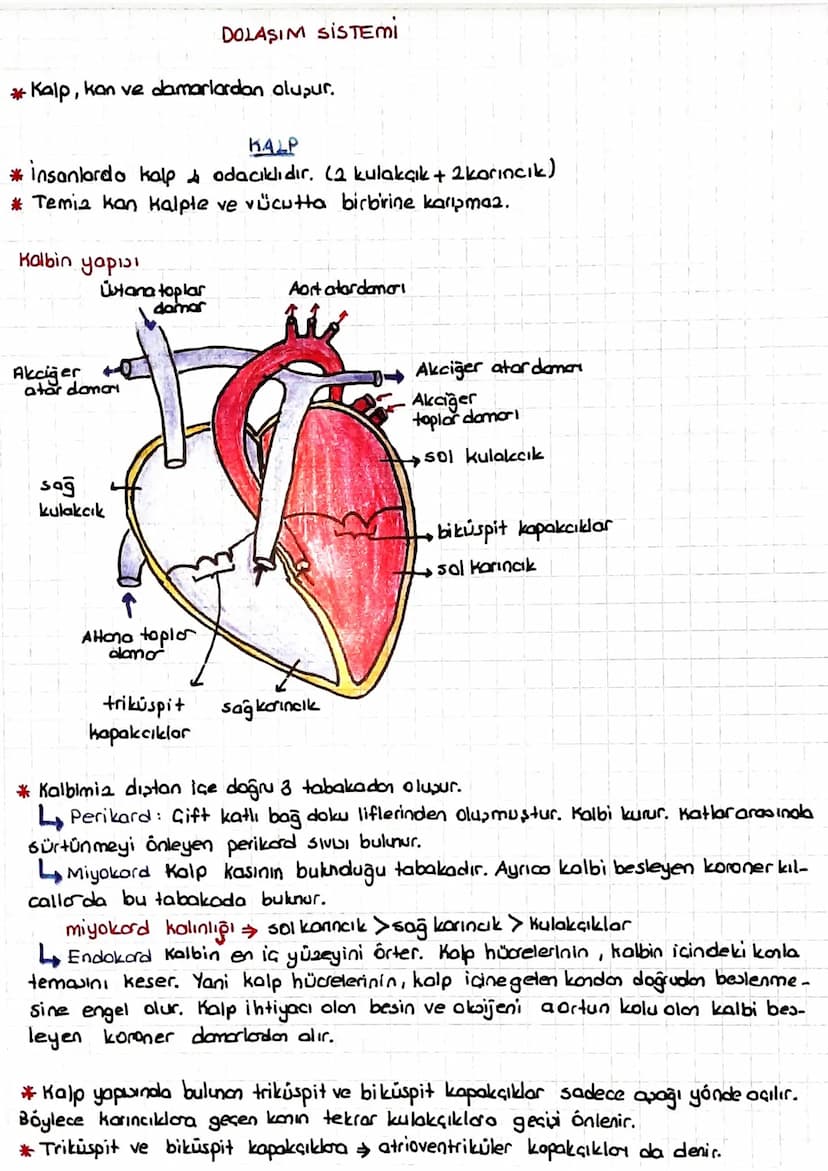 DOLAŞIM SİSTEMİ
* Kalp, kan ve damarlardan oluşur.
KALP
* İnsanlarda kalp 4 odacıklıdır. (2 kulakçık + 2 karıncık)
* Temiz kan kalpte ve vücutta birbirine karışmaz.
Kalbin yapısı
Üstana toplar
damar
Aort atardamarı
Akciğer
atar damarı
Akciğer atar damarı
Akciğer
toplar damarı
sol kulakcık
sağ
kulakcık
biküspit kapakcıklar
sol karıncık
Altana toplar
damar
triküspit
kapakcıklar
sağ karıncık
* Kalbimiz dıştan içe doğru 3 tabakadan oluşur.
↳ Perikard : Çift katlı bağ doku liflerinden oluşmuştur. Kalbi kurur. Katlar arasında
sürtünmeyi önleyen perikard sıvısı bulunur.
↳ Miyokard Kalp kasının bulunduğu tabakadır. Ayrıca kalbi besleyen koroner kıl-
callarda bu tabakada bulunur.
miyokard kalınlığı ⇒ sol karıncık > sağ karıncık > kulakçıklar
↳ Endokard Kalbin en iç yüzeyini örter. Kalp hücrelerinin , kalbin içindeki kanla
temasını keser. Yani kalp hücrelerinin, kalp içine gelen kandan doğrudan beslenme-
sine engel olur. Kalp ihtiyacı olan besin ve oksijeni aortun kolu olan kalbi bes-
leyen koroner damarlardan alır.
* Kalp yapısında bulunan triküspit ve biküspit kapakçıklar sadece aşağı yönde açılır.
Böylece karıncıklara geçen kanın tekrar kulakçıklara geçişi önlenir.
* Triküspit ve biküspit kapakçıklara → atrioventriküler kapakçıklar da denir.